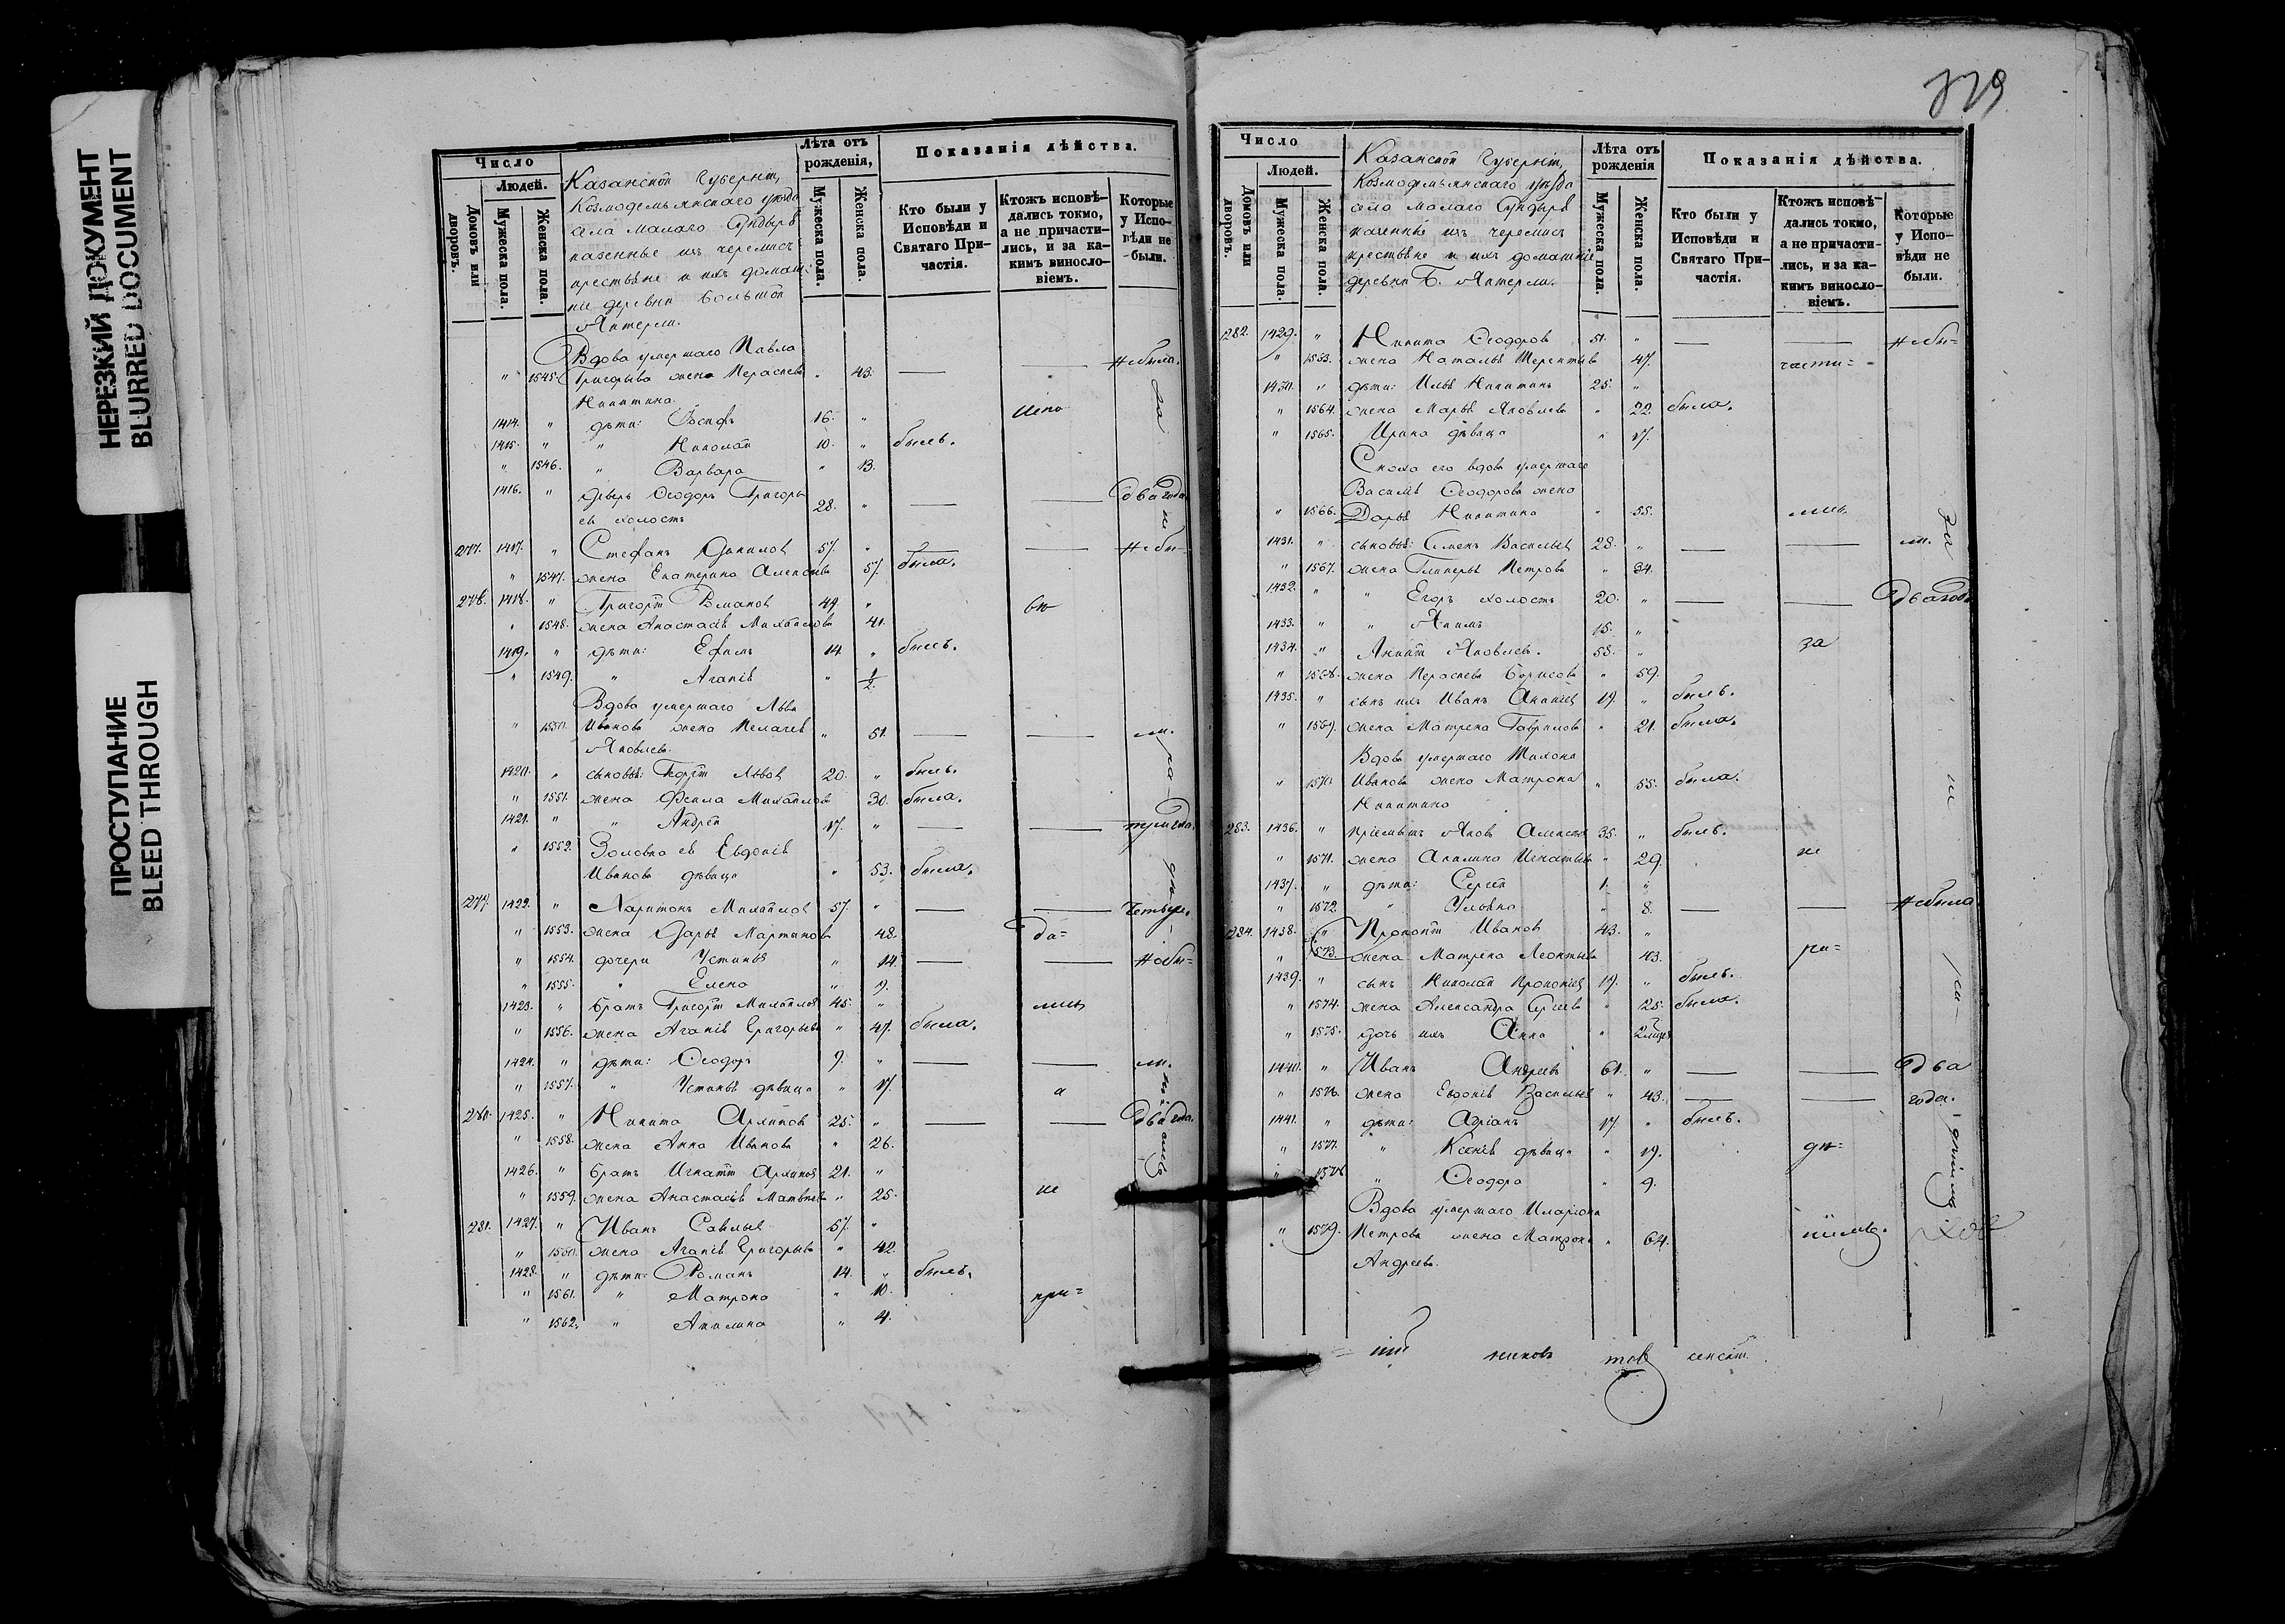 НЕРЕЗКИЙ ДОКУМЕНТ
BLURRED DOCUMENT
ПРОСТУПАНИЕ
BLEED THROUGH
Число
Людей.
Домовъ или дворовъ.
Мужеска пола.
Женска пола.
Казанской Губерніи,
Козмодемьянскаго уѣзда
села Малаго Сундыря
казенные изъ черемисъ
крестьяне и ихъ домаш:
ніе деревни Большой
Яктерли.
Лѣта отъ рожденія,
Мужеска пола.
Женска пола.
Показанія дѣйства.
Кто были у Исповѣди и Святаго Причастія.
Ктожъ исповѣдались токмо, а не причастились, и за какимъ винословіемъ.
Которые у Исповѣди не были.
Вдова умершаго Павла
" 1545. Григорьева жена Параскева " 43. — — Не была.
Никитина.
1414. " дѣти: Іосифъ 16. "
1415. " " Николай 10. " былъ.
" 1546. " Варвара " 13.
1416. " деверь Ѳеодоръ Григорь
евъ холостъ 28. " — — Два года
277. 1417. " Стефанъ Даниловъ 57. " — — Не бы-
" 1547. жена Екатерина Алексѣева 57. была.
278. 1418. " Григорій Романовъ 44. "
" 1548. жена Анастасія Михайлова 41.
1419. " дѣти: Ефимъ 14 " былъ.
" 1549. " Агапія " 1/2.
Вдова умершаго Льва
" 1550. Иванова жена Пелагея " 51. — — ли.
Яковлева.
1420. " сыновья: Георгій Львовъ 20. " былъ.
" 1551. жена Ѳекла Михайлова 30. была.
1421. " " Андрей 17. " — — три года.
" 1552. Золовка ея Евдокія
Иванова дѣвица " 53. была.
279. 1422. " Харитонъ Михайловъ 57. " — — Четыре.
" 1553. жена Дарья Мартынова 48. да=
" 1554. дочери Устинья " 14. — — Не бы=
" 1555. " Елена " 9.
1423. " братъ Григорій Михайловъ 45. " лись
" 1556. жена Агапія Григорьева " 47. была.
1424. " дѣти: Ѳеодоръ 9. " — — ли.
" 1557. " Устинья дѣвица " 17. а
280. 1425. " Никита Архиповъ 25. " — — Два года.
" 1558. жена Анна Иванова " 26.
1426. " братъ Игнатій Архиповъ 21. "
" 1559. жена Анастасія Матвѣева " 25. не
281. 1427. " Иванъ Савельевъ 57. "
" 1560. жена Агапія Григорьева " 42.
1428. " дѣти: Романъ 14. " былъ.
" 1561. " Матрона " 10. при=
" 1562. " Акилина " 4.
379
Число
Людей.
Домовъ или дворовъ.
Мужеска пола.
Женска пола.
Казанской Губерніи,
Козмодемьянскаго уѣзда
села Малаго Сундыря
казенные изъ черемисъ
крестьяне и ихъ домашніе
деревни Б. Яктерли.
Лѣта отъ рожденія
Мужеска пола.
Женска пола.
Показанія дѣйства.
Кто были у Исповѣди и Святаго Причастія.
Ктожъ исповѣдались токмо, а не причастились, и за какимъ винословіемъ.
Которые у Исповѣди не были.
282. 1429. " Никита Ѳеодоровъ 51. " — — Не бы=
" 1563. жена Наталья Терентьева 47. части=
1430. " дѣти: Илья Никитинъ 25. "
" 1564. жена Марья Яковлева " 22. была.
" 1565. Ирина дѣвица " 17.
Сноха его вдова умершаго
Василія Ѳеодорова жена
" 1566. Дарья Никитина " 55. лись
1431. " сыновья: Семенъ Васильевъ 28. " — — ли.
" 1567. жена Гликерья Петрова " 34.
1432. " " Егоръ холостъ 20. " — — Два года
1433. " " Якимъ 15. "
1434. " Ананій Яковлевъ. 58. " за
" 1568. жена Параскева Борисова " 59.
1435. " сынъ ихъ Иванъ Ананіевъ 19. " былъ.
" 1569. жена Матрена Гаврилова " 21. была.
Вдова умершаго Тихона
" 1570. Иванова жена Матрона " 55. была.
Никитина
283. 1436. " пріемышъ Яковъ Алексѣевъ 35. " былъ.
" 1571. жена Акилина Игнатьева " 29. не
1437. " дѣти: Сергѣй 1. "
" 1572. " Ульяна " 8. — — Не была
284. 1438. " Прокопій Ивановъ 43. "
" 1573. жена Матрена Леонтьева 43. ра=
1439. " сынъ Николай Прокопіевъ 19. " былъ.
" 1574. жена Александра Сергѣева " 25. была.
" 1575. дочь ихъ Анна "
1440. " Иванъ Андреевъ 61. " — — Два
" 1576. жена Евдокія Васильева " 43. — — года.
1441. " дѣти: Адріанъ 17 " былъ.
" 1577. " Ксенія дѣвица " 19. дѣ=
" 1578. " Ѳеодора " 9.
Вдова умершаго Иларіона
" 1579. Петрова жена Матрона " 64. ніемъ.
Андреева.